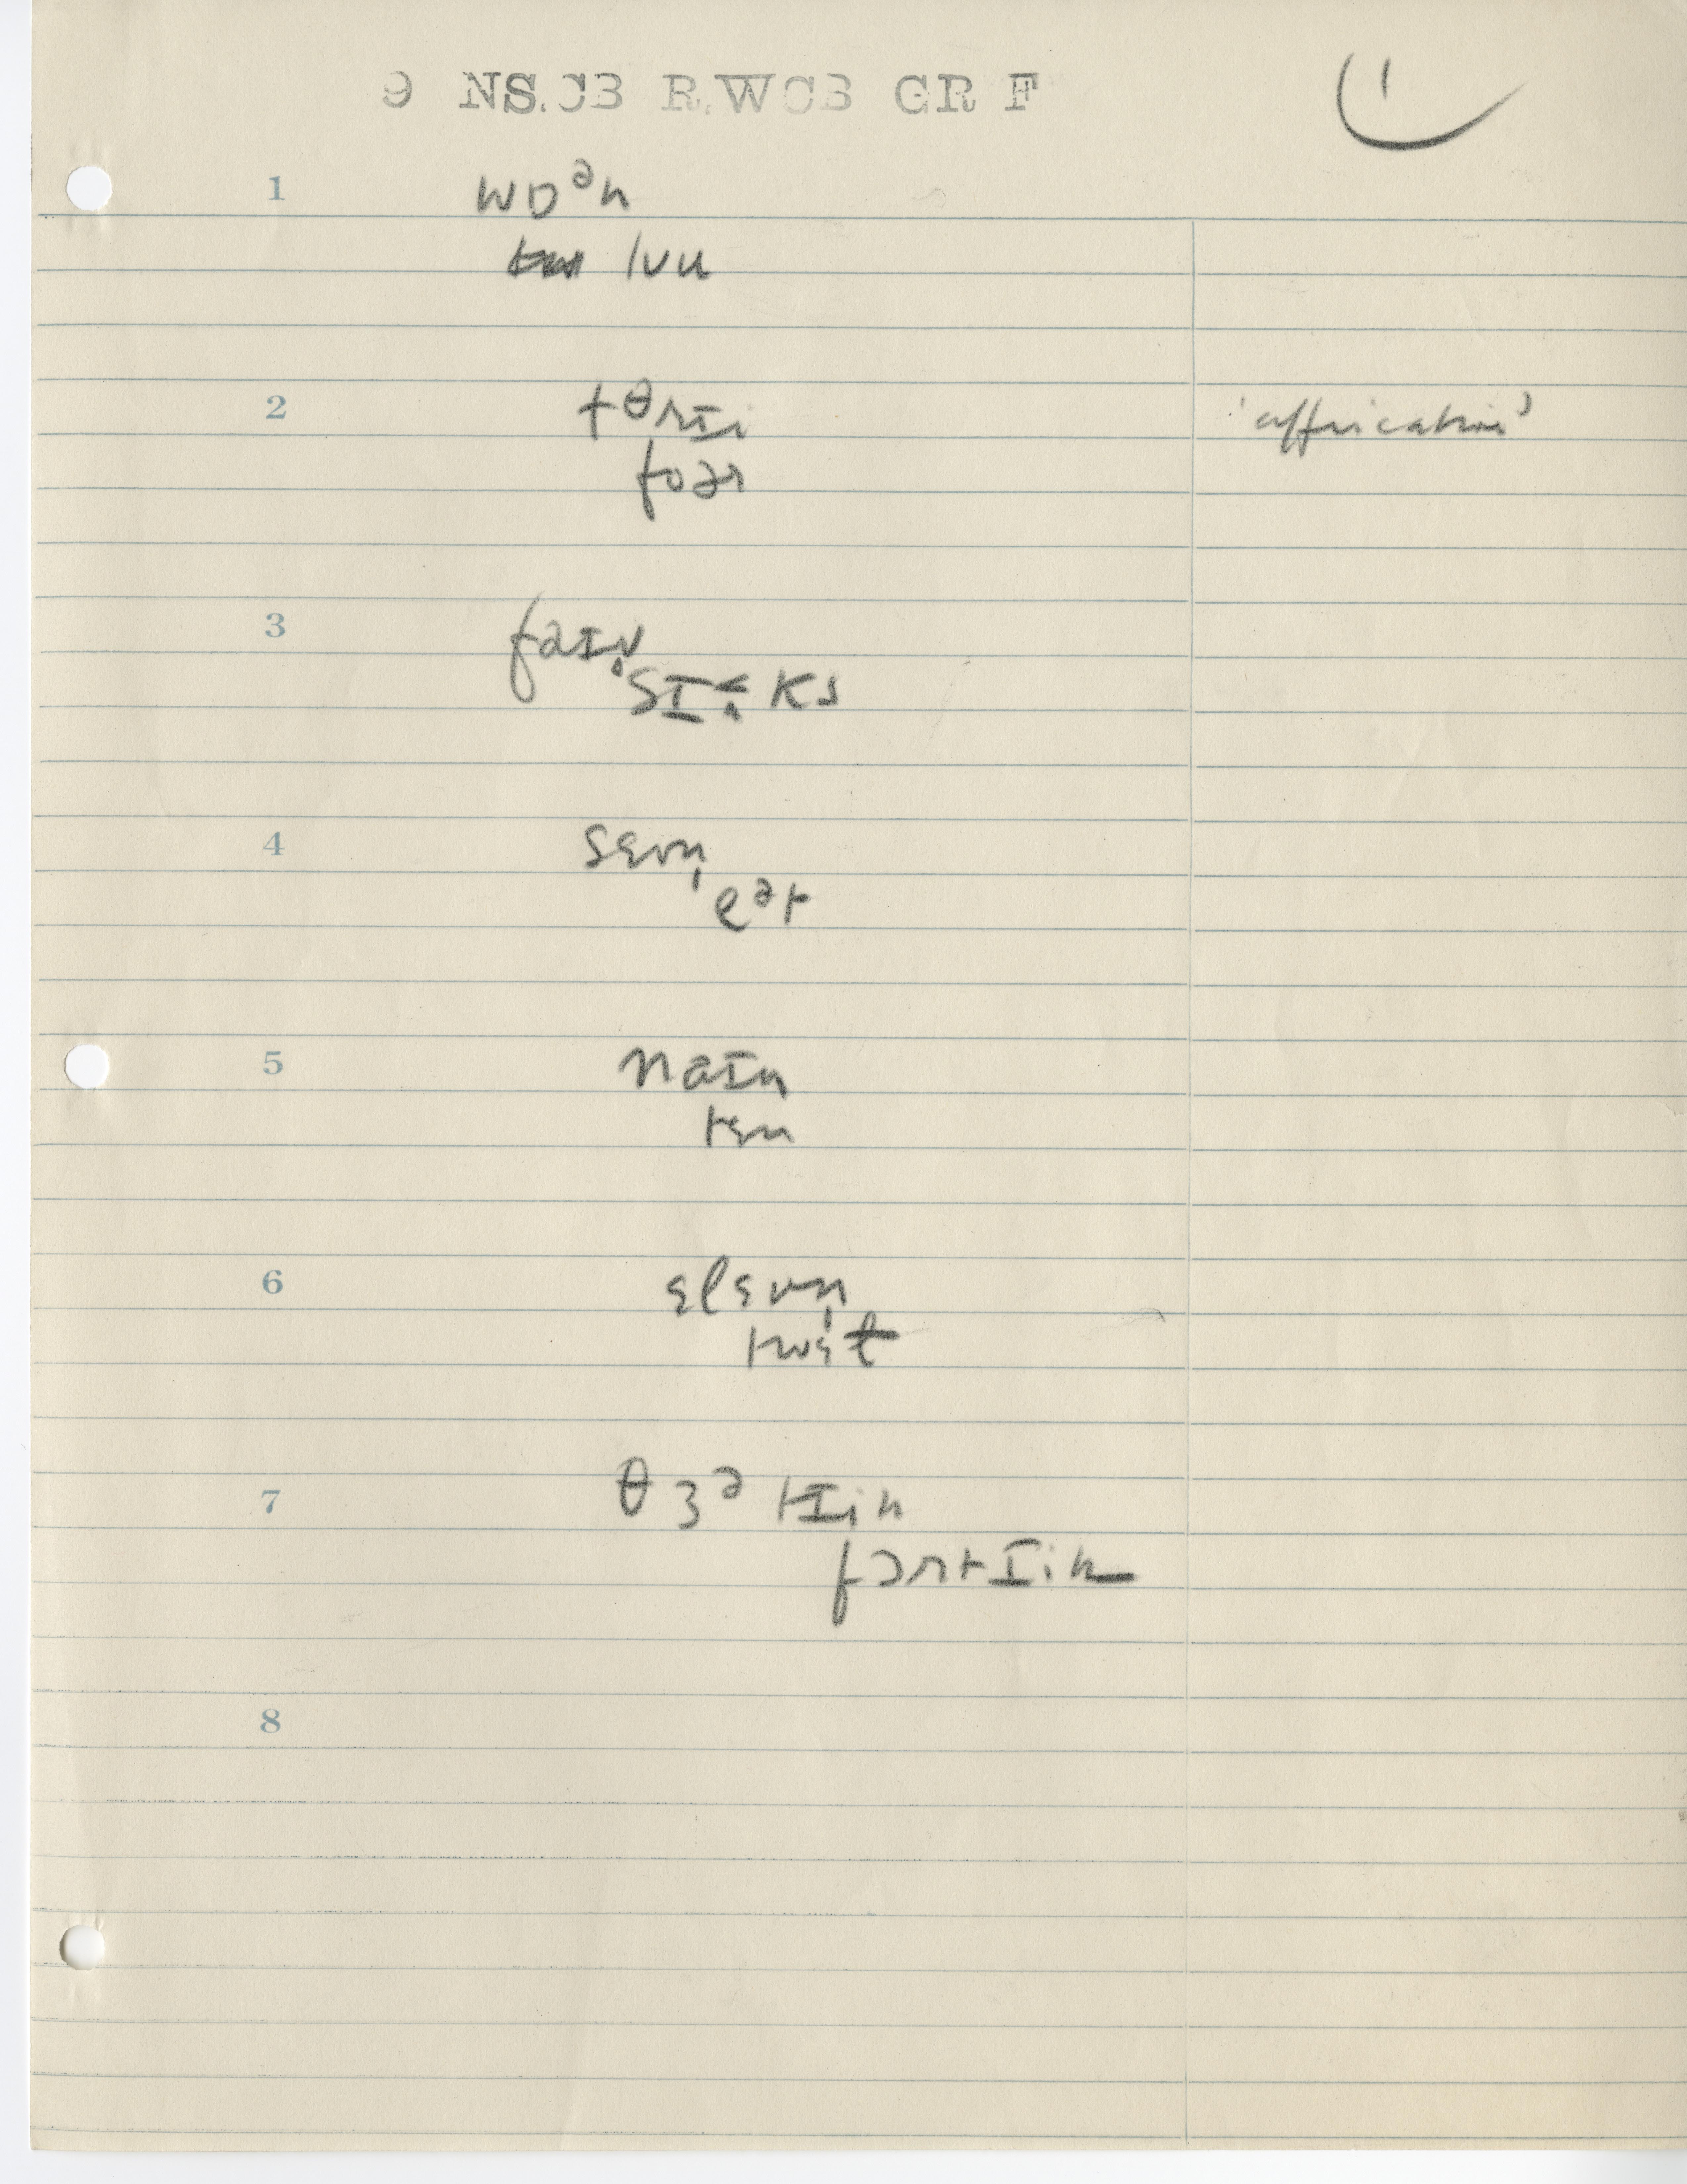 9 NS.CB R.WCB GR F
1
1 wɒᵊn
tuu
2 tθrɪi 'affrication'
foər
3 faɪv̥
sɪ^ks
4 sɛvn̩
eᵊt
5 naɪn
tɛn
6 ɛlɛvn̩
twɛɫ
7 θɜᵊtɪin
fɔrtɪin
8